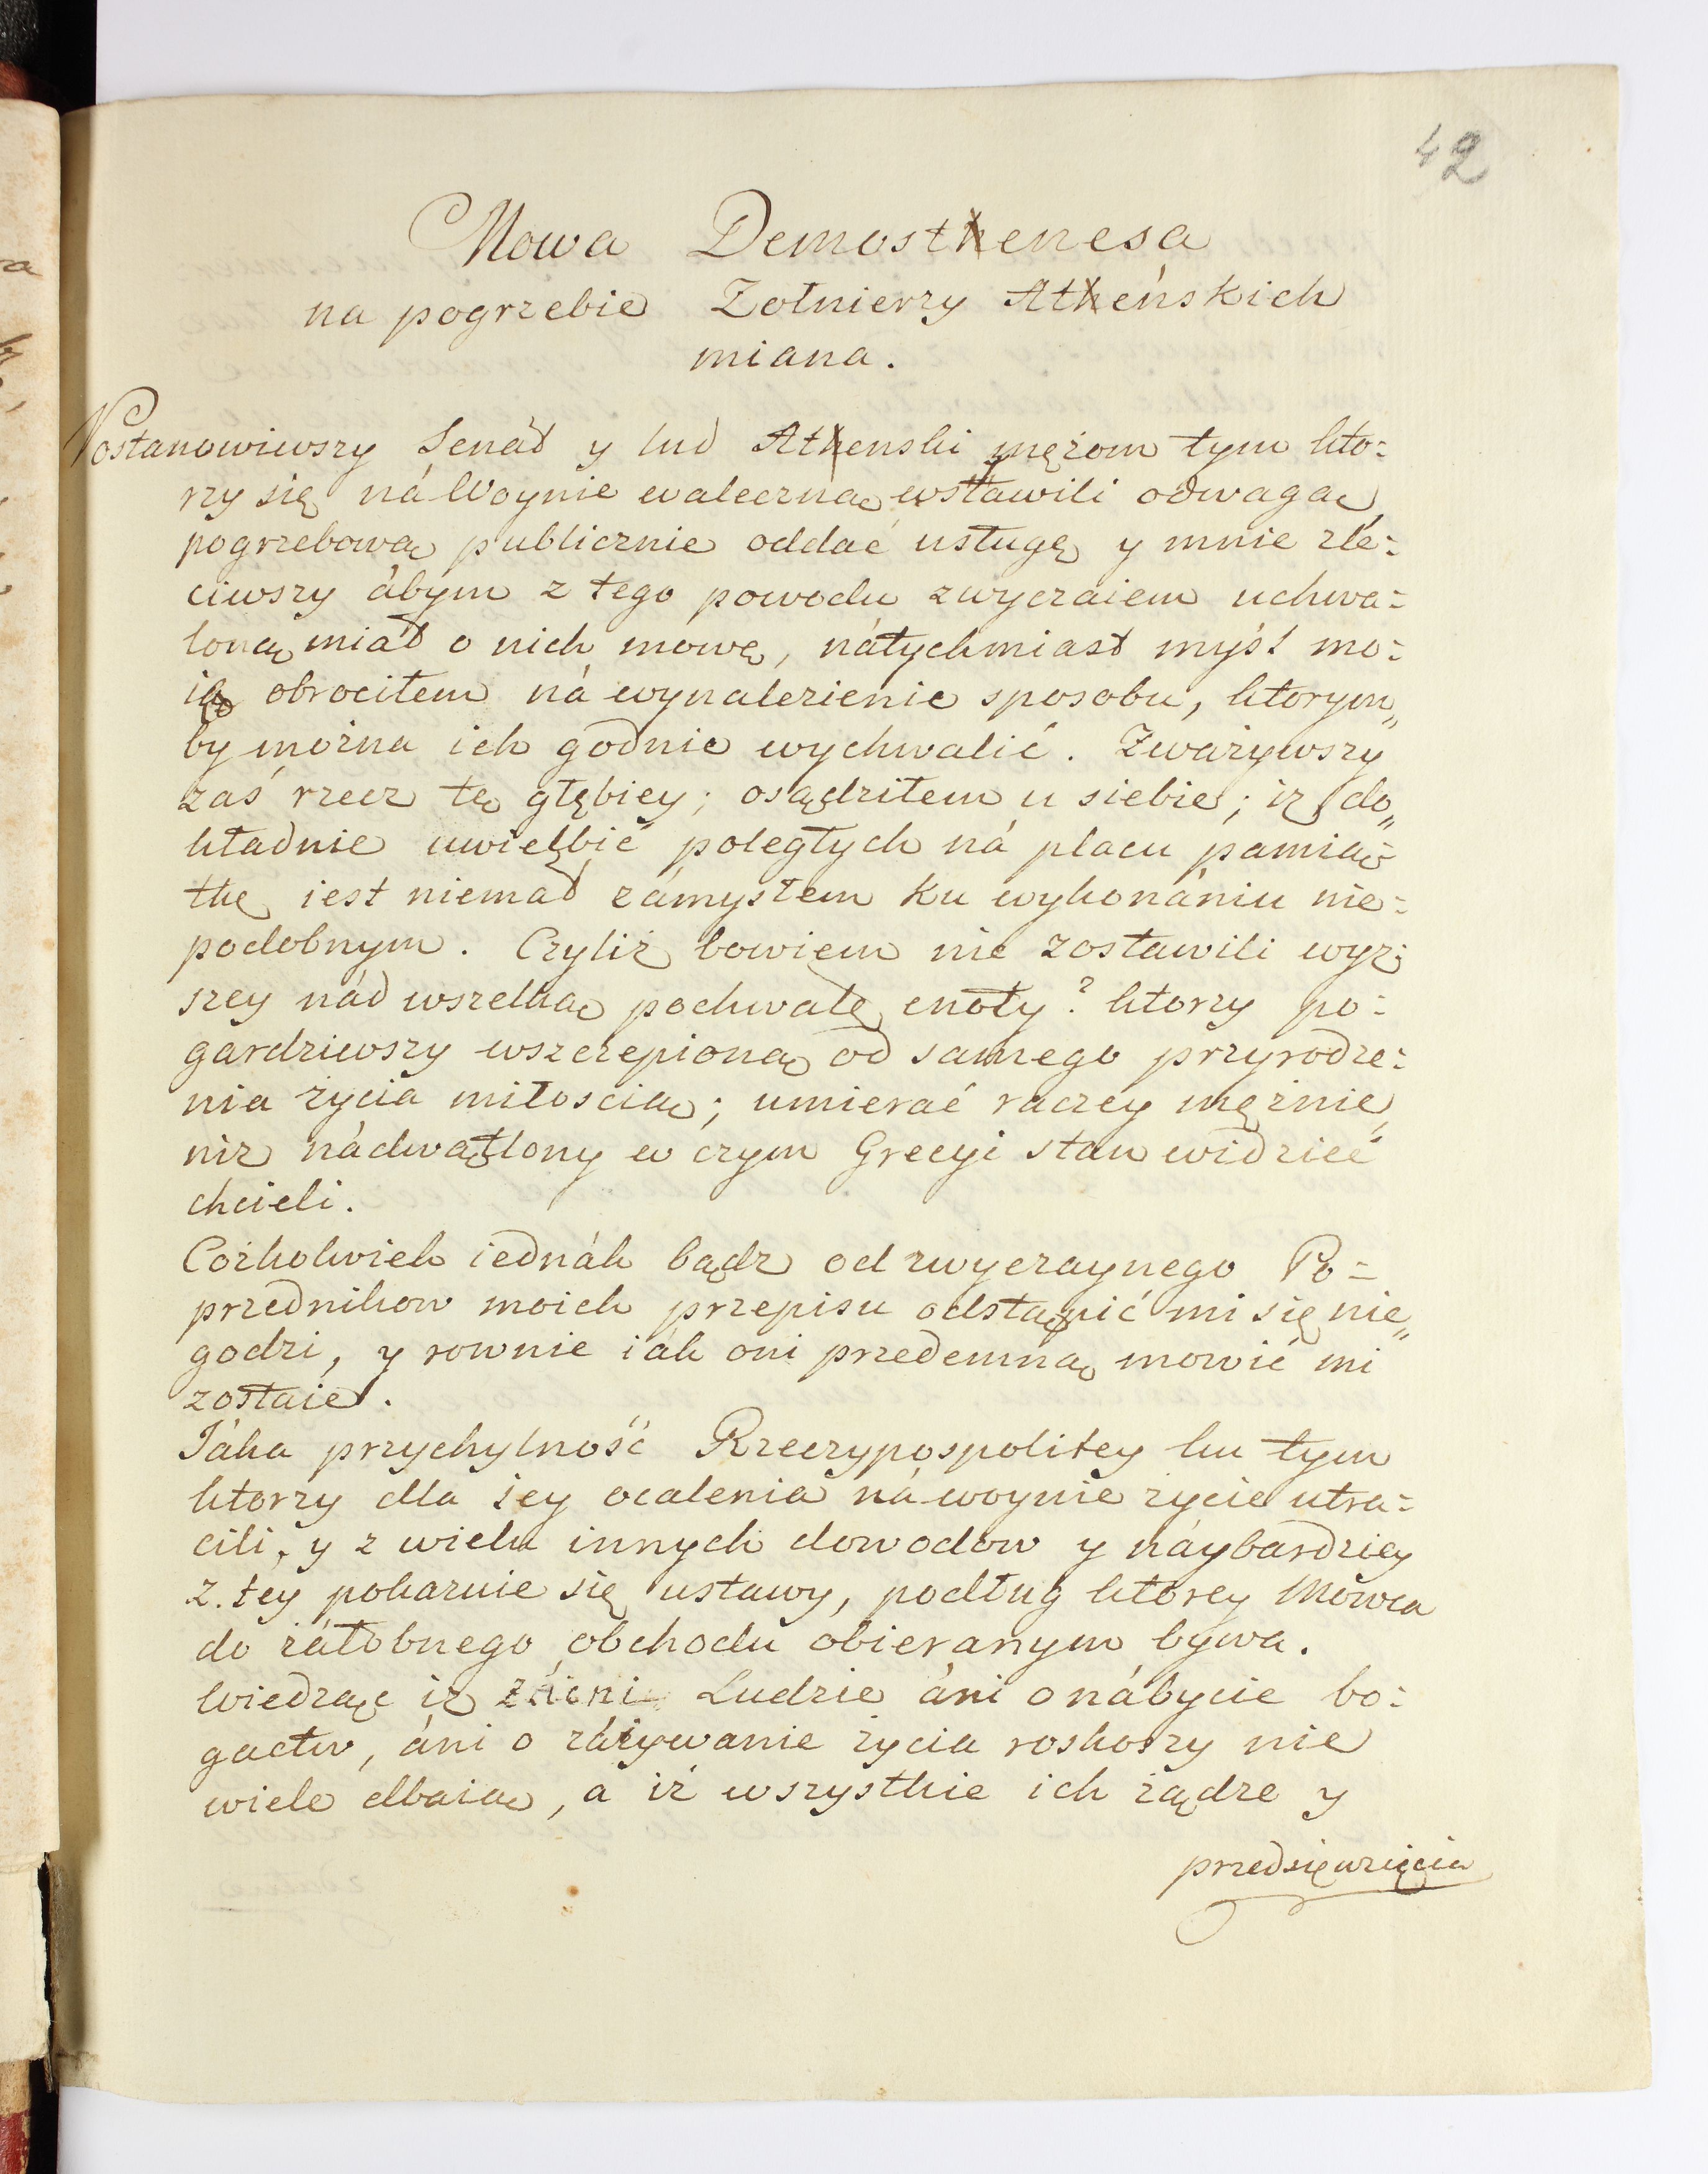 42
Mowa Demosthenesa
na pogrzebie Zołnierzy Atheńskich
miana.
Postanowiwszy Senát y lud Athenski mężom tym kto=
rzy się ná Woynie waleczną wsławili odwagą
pogrzebową publicznie oddać usługę y mnie zle=
ciwszy ábym z tego powodu zwyczaiem uchwa=
loną miał o nich mowę, nátychmiast myśl mo=
ię obrociłem ná wynalezienie sposobu, ktorym„
by można ich godnie wychwalić. Zważywszy
zaś rzecz tę głębiey; osądziłem u siebie; iż do„
kładnie uwielbić poległych ná placu pamią=
tkę iest niemal zámysłem ku wykonániu nie=
podobnym. Czyliż bowiem nie zostawili wyż=
szey nád wszelką pochwałę cnoty? ktorzy po=
gardziwszy wszczepioną od samego przyrodze=
nia życia miłoscią; umierać raczey mężnie
niż nádwątlony w czym Grecyi stan widzieć
chcieli.
Cożkolwiek iednák bądz od zwyczaynego Po=
przednikow moich przepisu odstąpić mi się nie„
godzi, y rownie iák oni przedemną mowić mi
zostaie.
Jáka przychylność Rzeczypospolitey ku tym
ktorzy dla iey ocalenia ná woynie życie utra=
cili, y z wielu innych dowodow y náybardziey
z. tey pokazuie się ustawy, podług ktorey Mowca
do żáłobnego obchodu obieranym bywa.
Wiedząc iż zácni Ludzie áni o nábycie bo=
gactw, áni o záżywanie życia roskoszy nie
wiele dbaią, a iż wszystkie ich żądze y
przedsięwzięcia